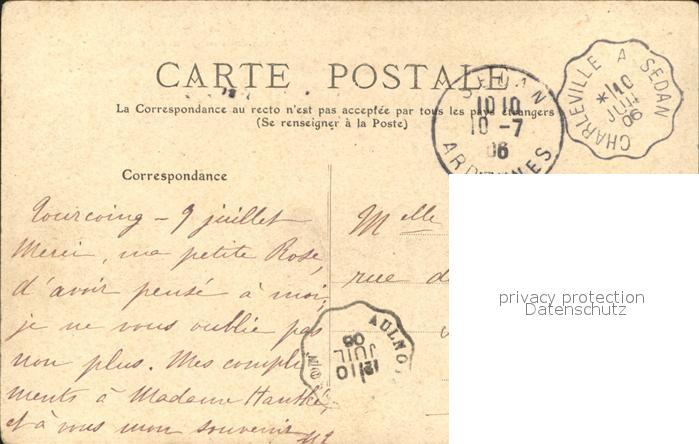 CARTE POSTALE
La Correspondance au recto n'est pas acceptée par tous les pays étrangers
(Se renseigner à la Poste)
SEDAN
10 10
10 -7
06
ARDENNES
CHARLEVILLE A SEDAN
* 10
JUIL
06
Correspondance
Tourcoing - 9 juillet
Merci, ma petite Rose,
d'avoir pensé à moi,
je ne vous oublie pas
non plus. Mes compli-
ments à Madame
et à vous mon souvenir
Melle
rue d
AULNO
12/10
JUIL
06
privacy protection
Datenschutz